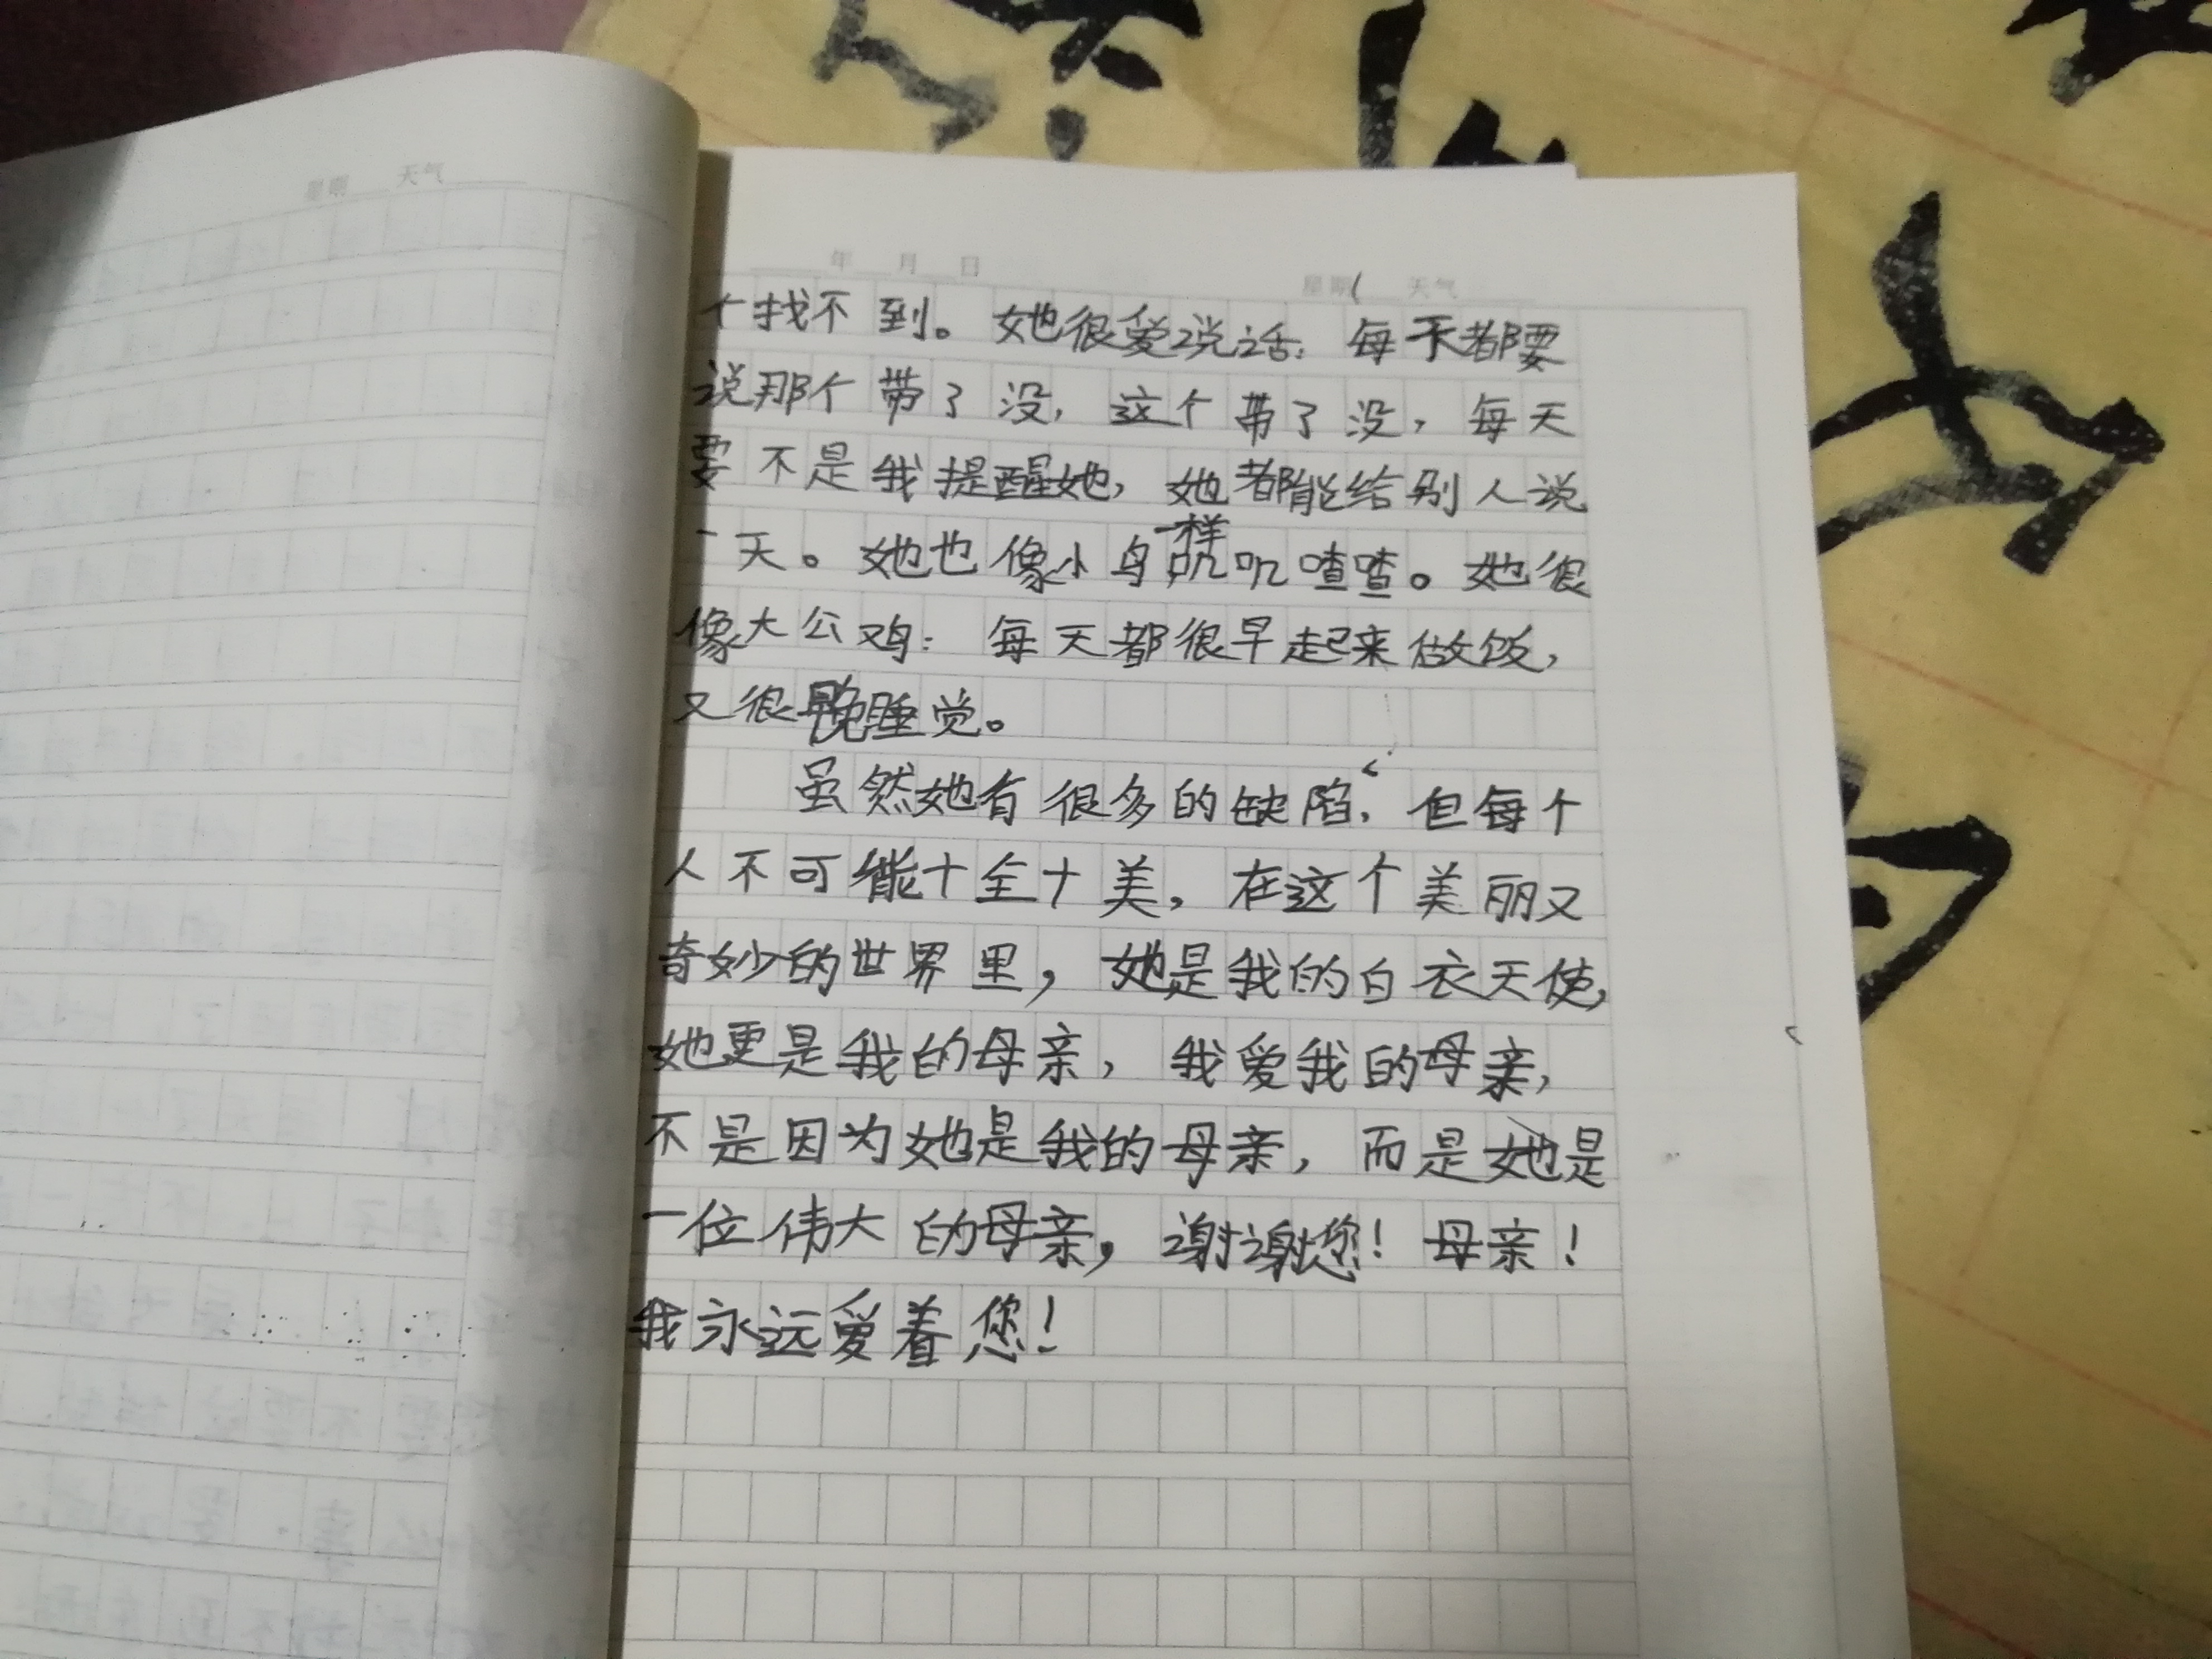 星期 天气
年 月 日 星期 天气
个找不到。她很爱说话：每天都要
说那个带了没，这个带了没，每天
要不是我提醒她，她都能给别人说
一天。她也像小鸟一样叽叽喳喳。她很
像大公鸡：每天都很早起来做饭，
又很晚睡觉。
虽然她有很多的缺陷，但每个
人不可能十全十美，在这个美丽又
奇妙的世界里，她是我的白衣天使，
她更是我的母亲，我爱我的母亲，
不是因为她是我的母亲，而是她是
一位伟大的母亲，谢谢您！母亲！
我永远爱着您！